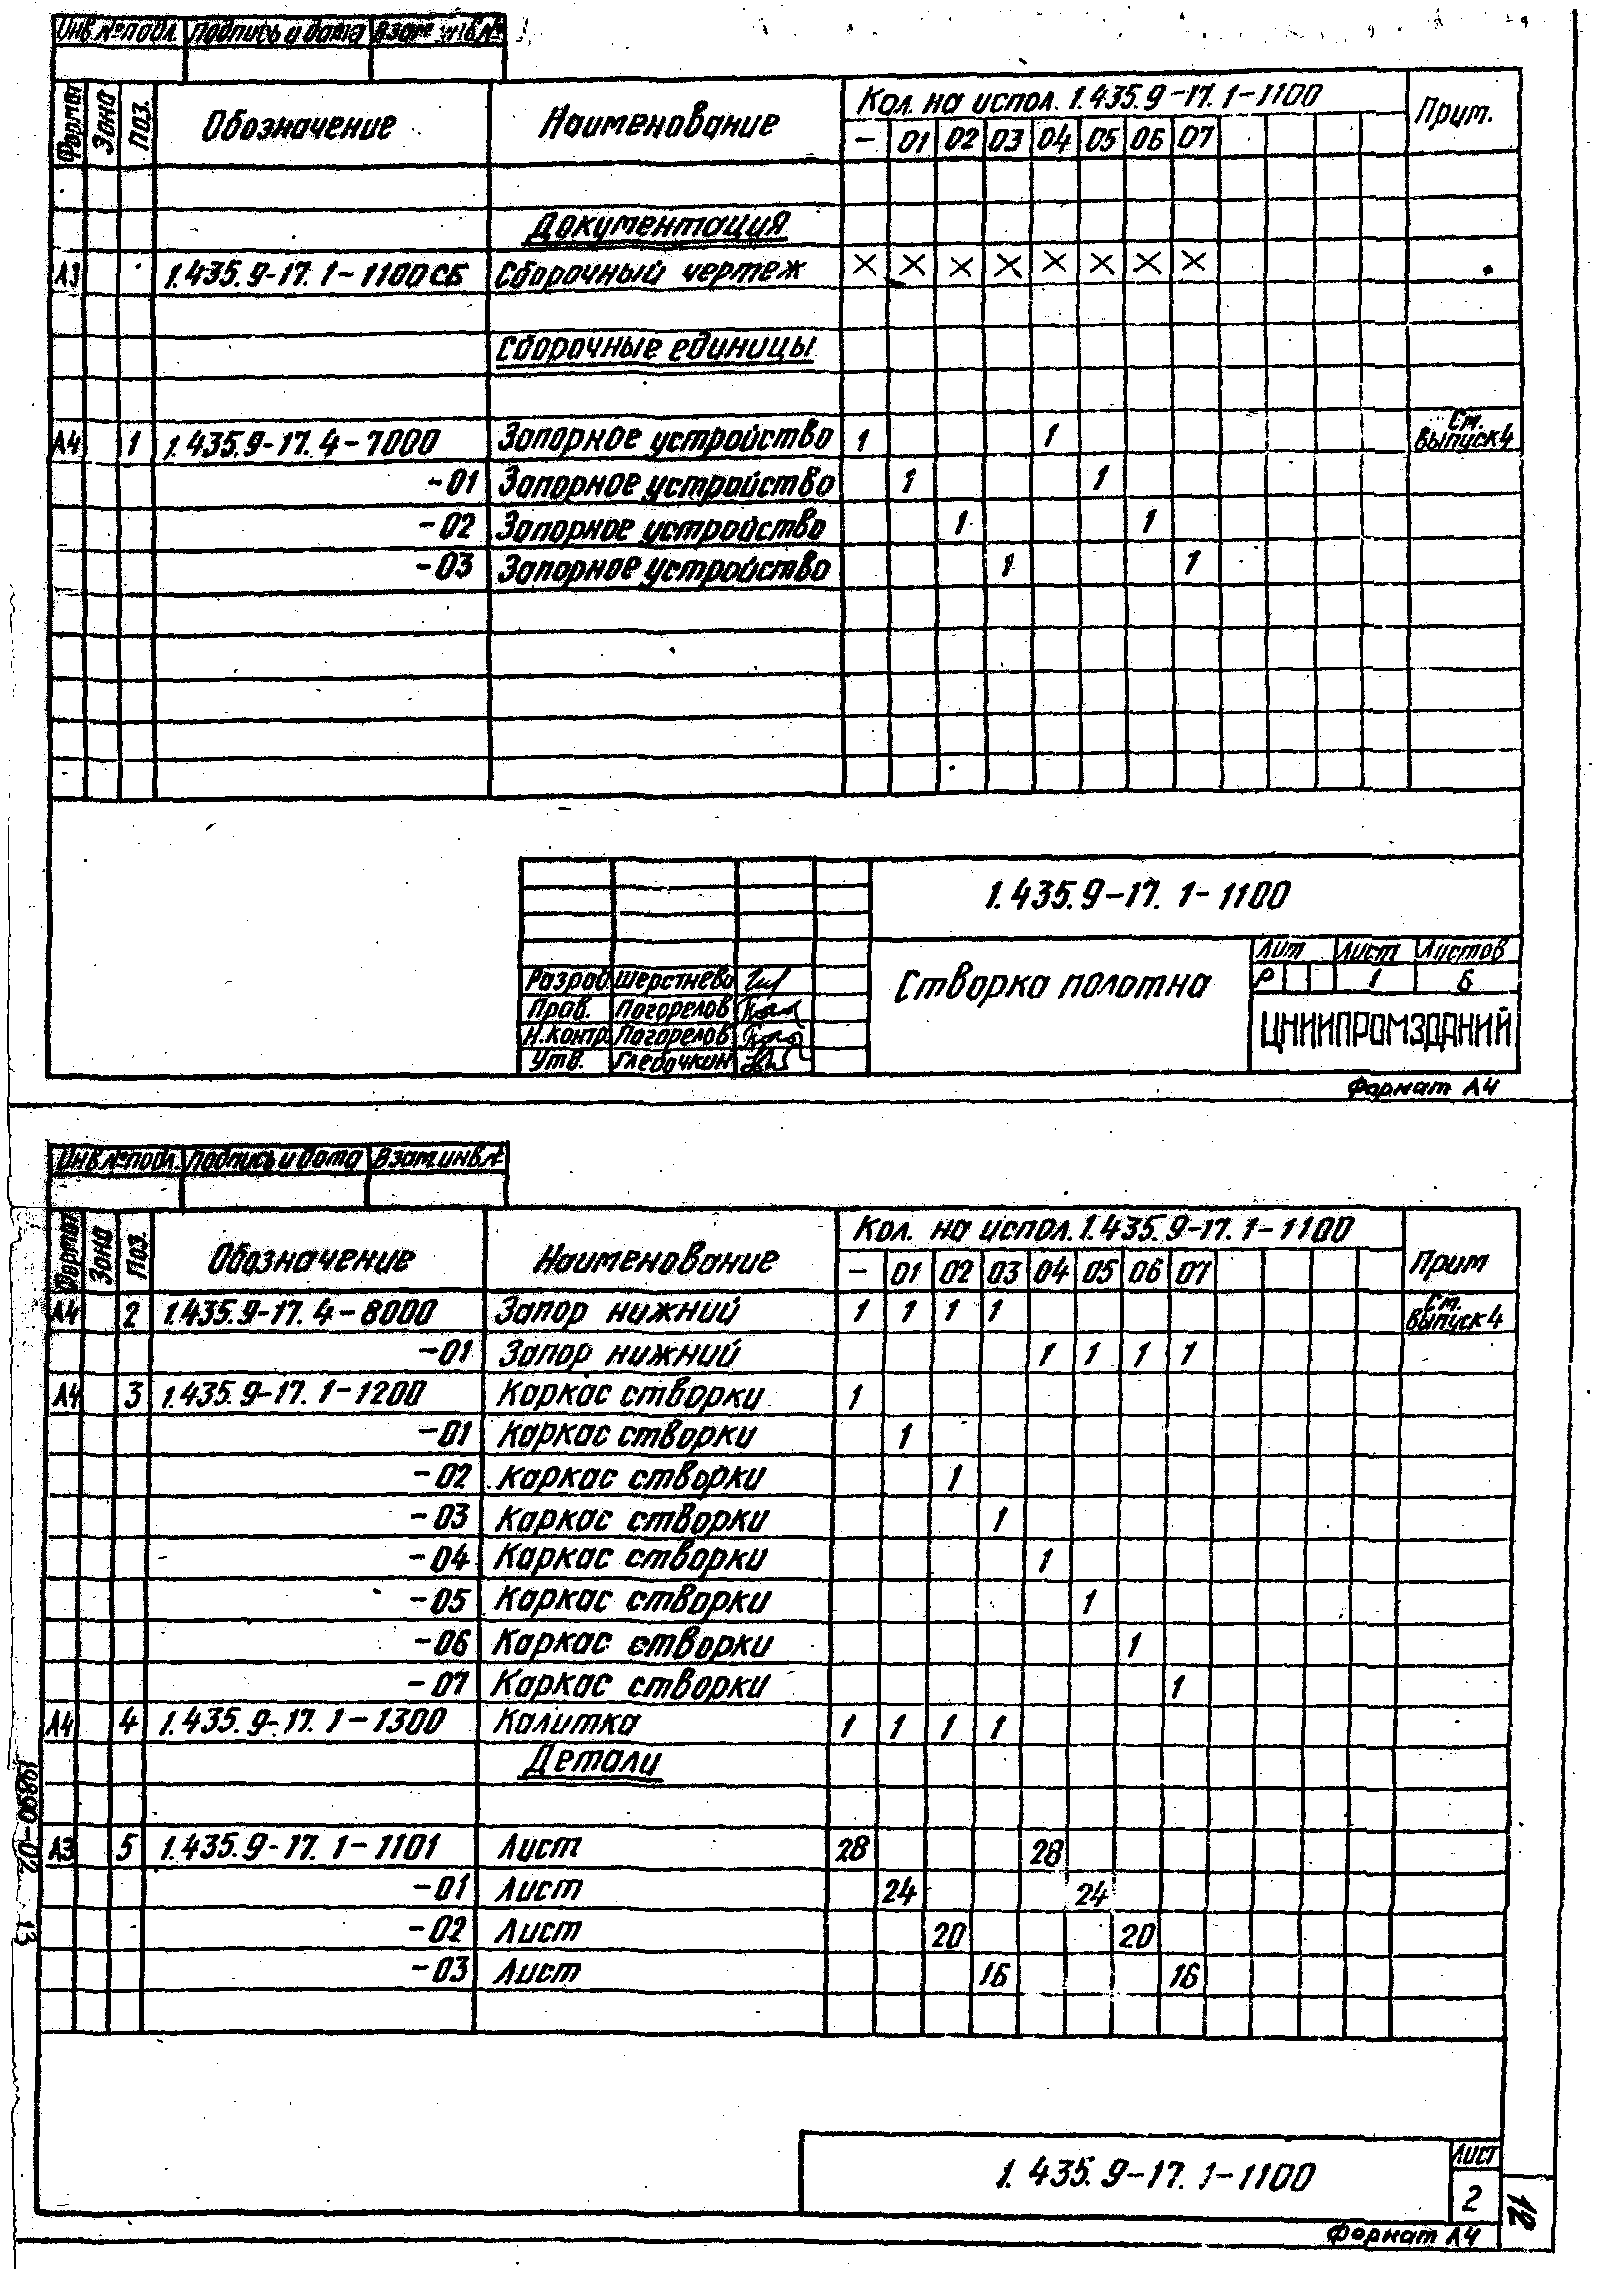 Инв.№подл. Подпись и дата Взам. инв.№
Формат Зона Поз. Обозначение Наименование Кол. на испол. 1.435.9-17.1-1100 Прим.
– 01 02 03 04 05 06 07
Документация
А3 1.435.9-17.1-1100СБ Сборочный чертеж × × × × × × × ×
Сборочные единицы
А4 1 1.435.9-17.4-7000 Запорное устройство 1 1 См. выпуск 4
-01 Запорное устройство 1 1
-02 Запорное устройство 1 1
-03 Запорное устройство 1 1
1.435.9-17.1-1100
Створка полотна
Лит Лист Листов
Р 1 6
Разраб. Шерстнева
Пров. Погорелов
Н.контр. Погорелов
Утв. Глебочкин
ЦНИИПРОМЗДАНИЙ
Формат А4
Инв.№подл. Подпись и дата Взам.инв.№
Формат Зона Поз. Обозначение Наименование Кол. на испол. 1.435.9-17.1-1100 Прим
– 01 02 03 04 05 06 07
А4 2 1.435.9-17.4-8000 Запор нижний 1 1 1 1 См. выпуск 4
-01 Запор нижний 1 1 1 1
А4 3 1.435.9-17.1-1200 Каркас створки 1
-01 Каркас створки 1
-02 Каркас створки 1
-03 Каркас створки 1
-04 Каркас створки 1
-05 Каркас створки 1
-06 Каркас створки 1
-07 Каркас створки 1
А4 4 1.435.9-17.1-1300 Калитка 1 1 1 1
Детали
А3 5 1.435.9-17.1-1101 Лист 28 28
-01 Лист 24 24
-02 Лист 20 20
-03 Лист 16 16
19890-02 13
1.435.9-17.1-1100
Лист
2
12
Формат А4